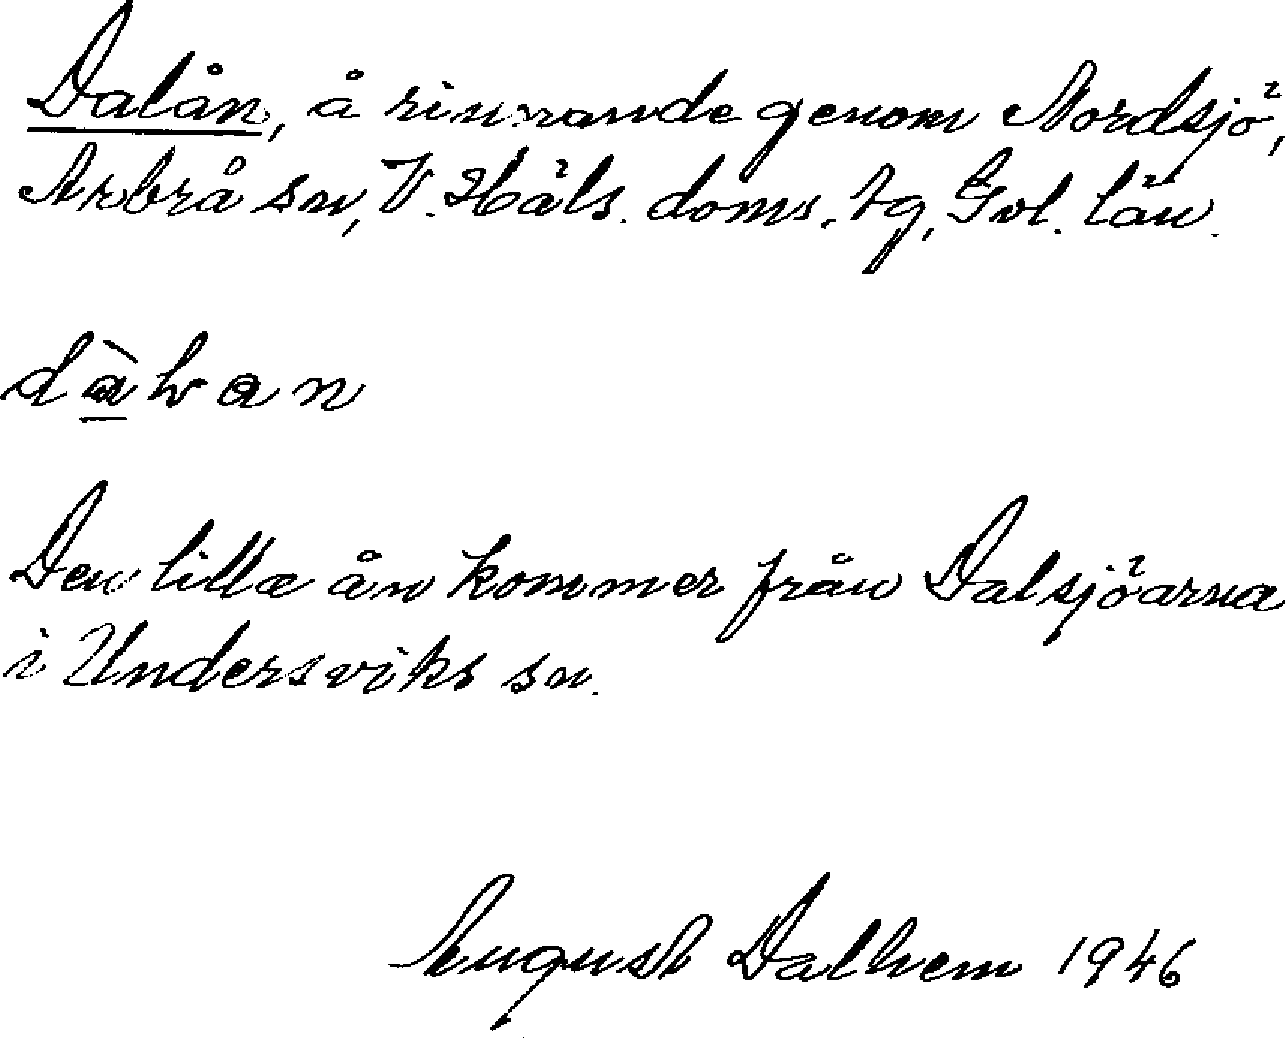 Dalån, å rinnande genom Nordsjö,
Arbrå sn, V. Häls. doms. tg, Gvl. län.
Den lilla ån kommer från Dalsjöarna
i Undersviks sn.
August Dalhem 1946